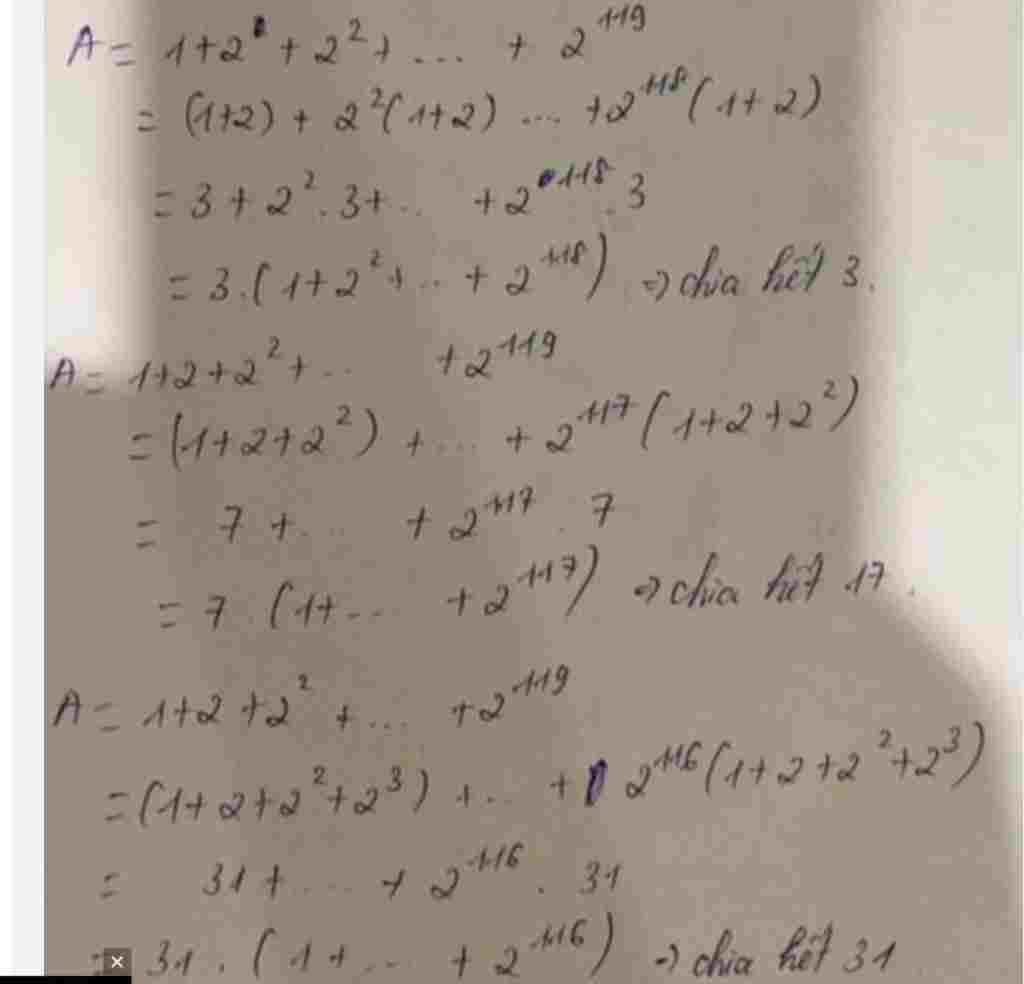 A = 1+2 + 2² + ... + 2¹¹⁹
= (1+2) + 2²(1+2) ... + 2¹¹⁸(1+2)
= 3 + 2².3+ .. + 2¹¹⁸.3
= 3.(1+2²+ .. + 2¹¹⁸) => chia hết 3.
A = 1+2+2²+ .. + 2¹¹⁹
= (1+2+2²) + ... + 2¹¹⁷(1+2+2²)
= 7 + ... + 2¹¹⁷.7
= 7.(1+ .. + 2¹¹⁷) => chia hết 17.
A = 1+2+2² + ... + 2¹¹⁹
= (1+2+2²+2³) + .. + 2¹¹⁶(1+2+2²+2³)
= 31 + ... + 2¹¹⁶.31
= 31.(1+ ... + 2¹¹⁶) => chia hết 31